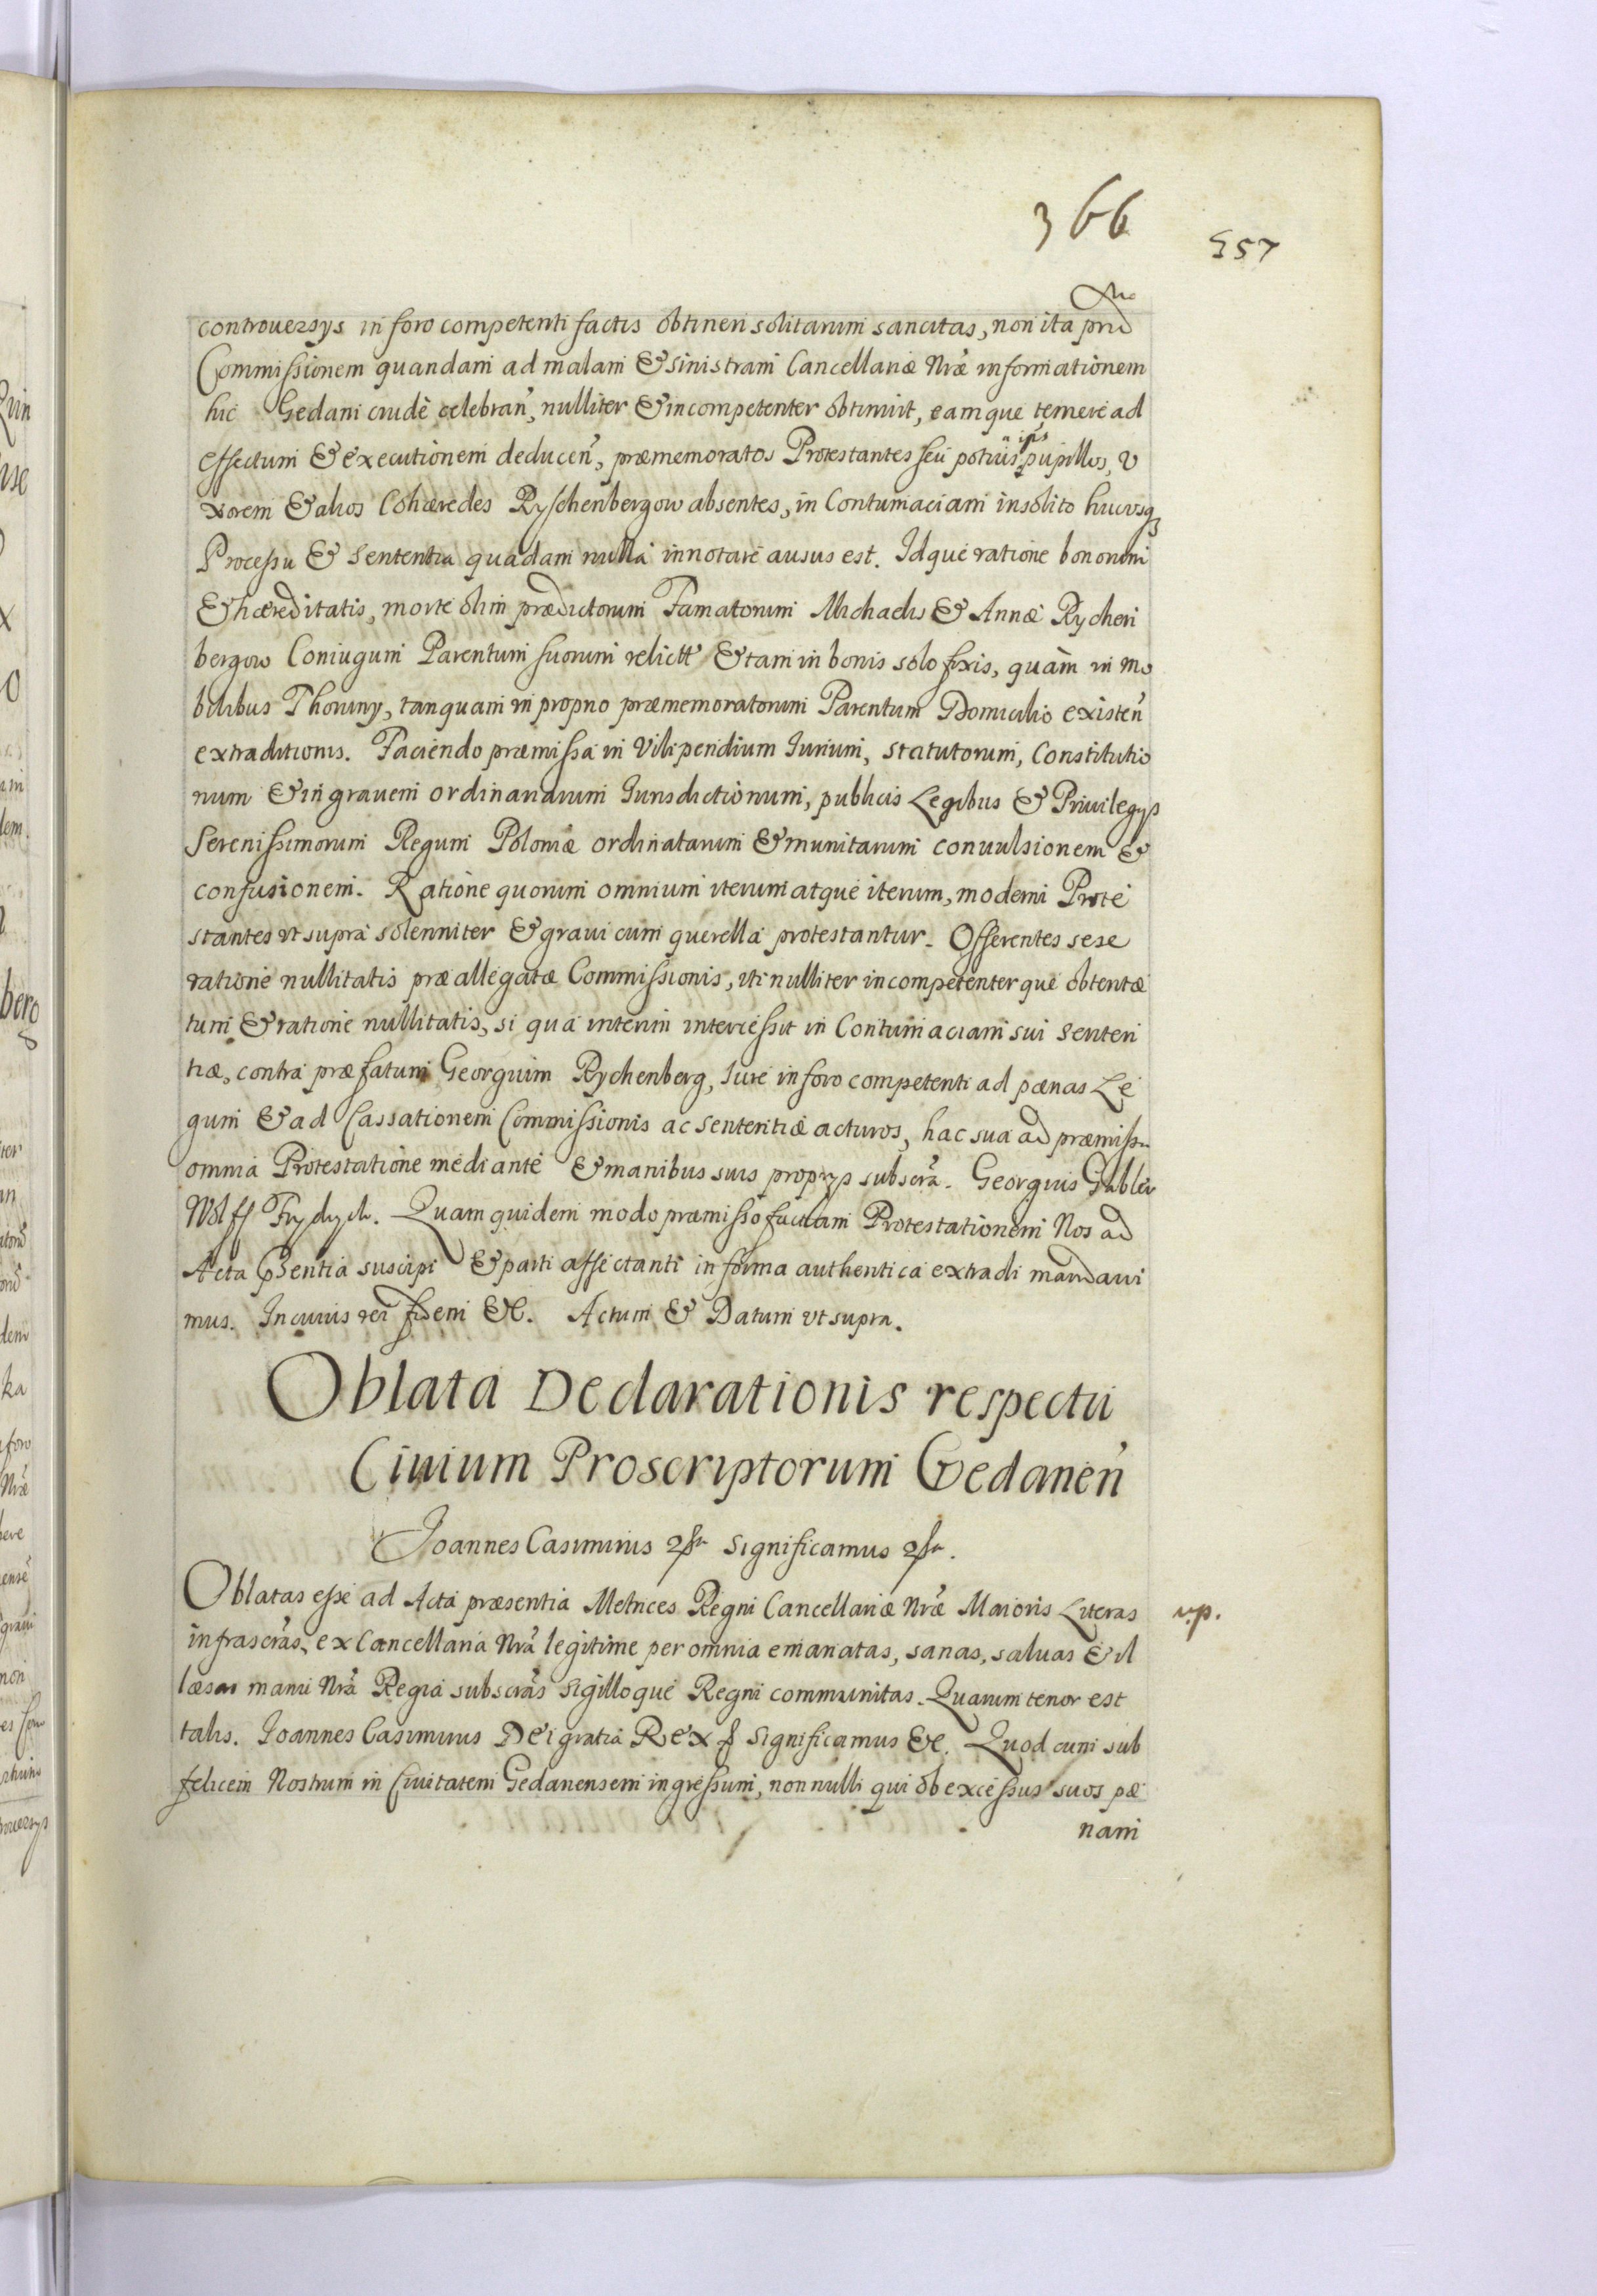 366
557
controuersys in foro competenti factis obtineri solitarum sancitas, non ita prid
Commissionem quandam ad malam & sinistram Cancellariæ Nræ informationem
hic Gedani crudè celebran, nulliter & incompetenter obtinuit, eamque temere ad
effectum & executionem deducen, præmemoratos Protestantes seu potius pupillos, V
xorem & alios Cohæredes Ryschenbergow absentes, in Contumaciam insolito hucvsq
Processu & sententia quadam nulla innotare ausus est. Idque ratione bonorum
& hæreditatis, morte olim prædictorum Famatorum Michaelis & Annæ Rychen
bergow Coniugum Parentum suorum relict & tam in bonis solo fixis, quàm in mo
bilibus Thoruny, tanquam in proprio præmemoratorum Parentum Domicilio existen
extraditionis. Faciendo præmissa in Vilipendium Iurium, statutorum, Constitutio
num & in grauem ordinariarum Iurisdictionum, publicis Legibus & Priuilegys
Serenissimorum Regum Poloniæ ordinatarum & munitarum conuulsionem &
confusionem. Ratione quorum omnium iterum atque iterum, moderni Prote
stantes vt supra solenniter & graui cum querella protestantur. Offerentes sese
ratione nullitatis præallegatæ Commissionis, vti nulliter incompetenterque obtentæ
tum & ratione nullitatis, si qua interim intercessit in Contumaciam sui senten
tiæ, contra præfatum Georgium Rychenberg, Iure in foro competenti ad pænas Le
gum & ad Cassationem Commissionis ac sententiæ acturos, hac sua ad præmissa
omnia Protestatione mediante & manibus suis proprys subscra. Georgius Gabler
Wolff Frydych. Quam quidem modo præmisso factam Protestationem Nos ad
Acta pñsentia suscipi & parti affectanti in forma authentica extradi mandaui
mus. In cuius rei fidem &c. Actum & Datum vt supra.
Oblata Declarationis respectu
Ciuium Proscriptorum Gedanen
Ioannes Casimirus significamus
Oblatas esse ad Acta præsentia Metrices Regni Cancellariæ Nræ Maioris Literas
v.p.
infrascras, ex Cancellaria Nra legitime per omnia emanatas, sanas, saluas & il
læsas manu Nra Regia subscras sigilloque Regni communitas. Quarum tenor est
talis. Ioannes Casimirus Dei gratia Rex significamus &c. Quod cum sub
felicem Nostrum in Ciuitatem Gedanensem ingressum, nonnulli qui ob excessus suos pæ
nam